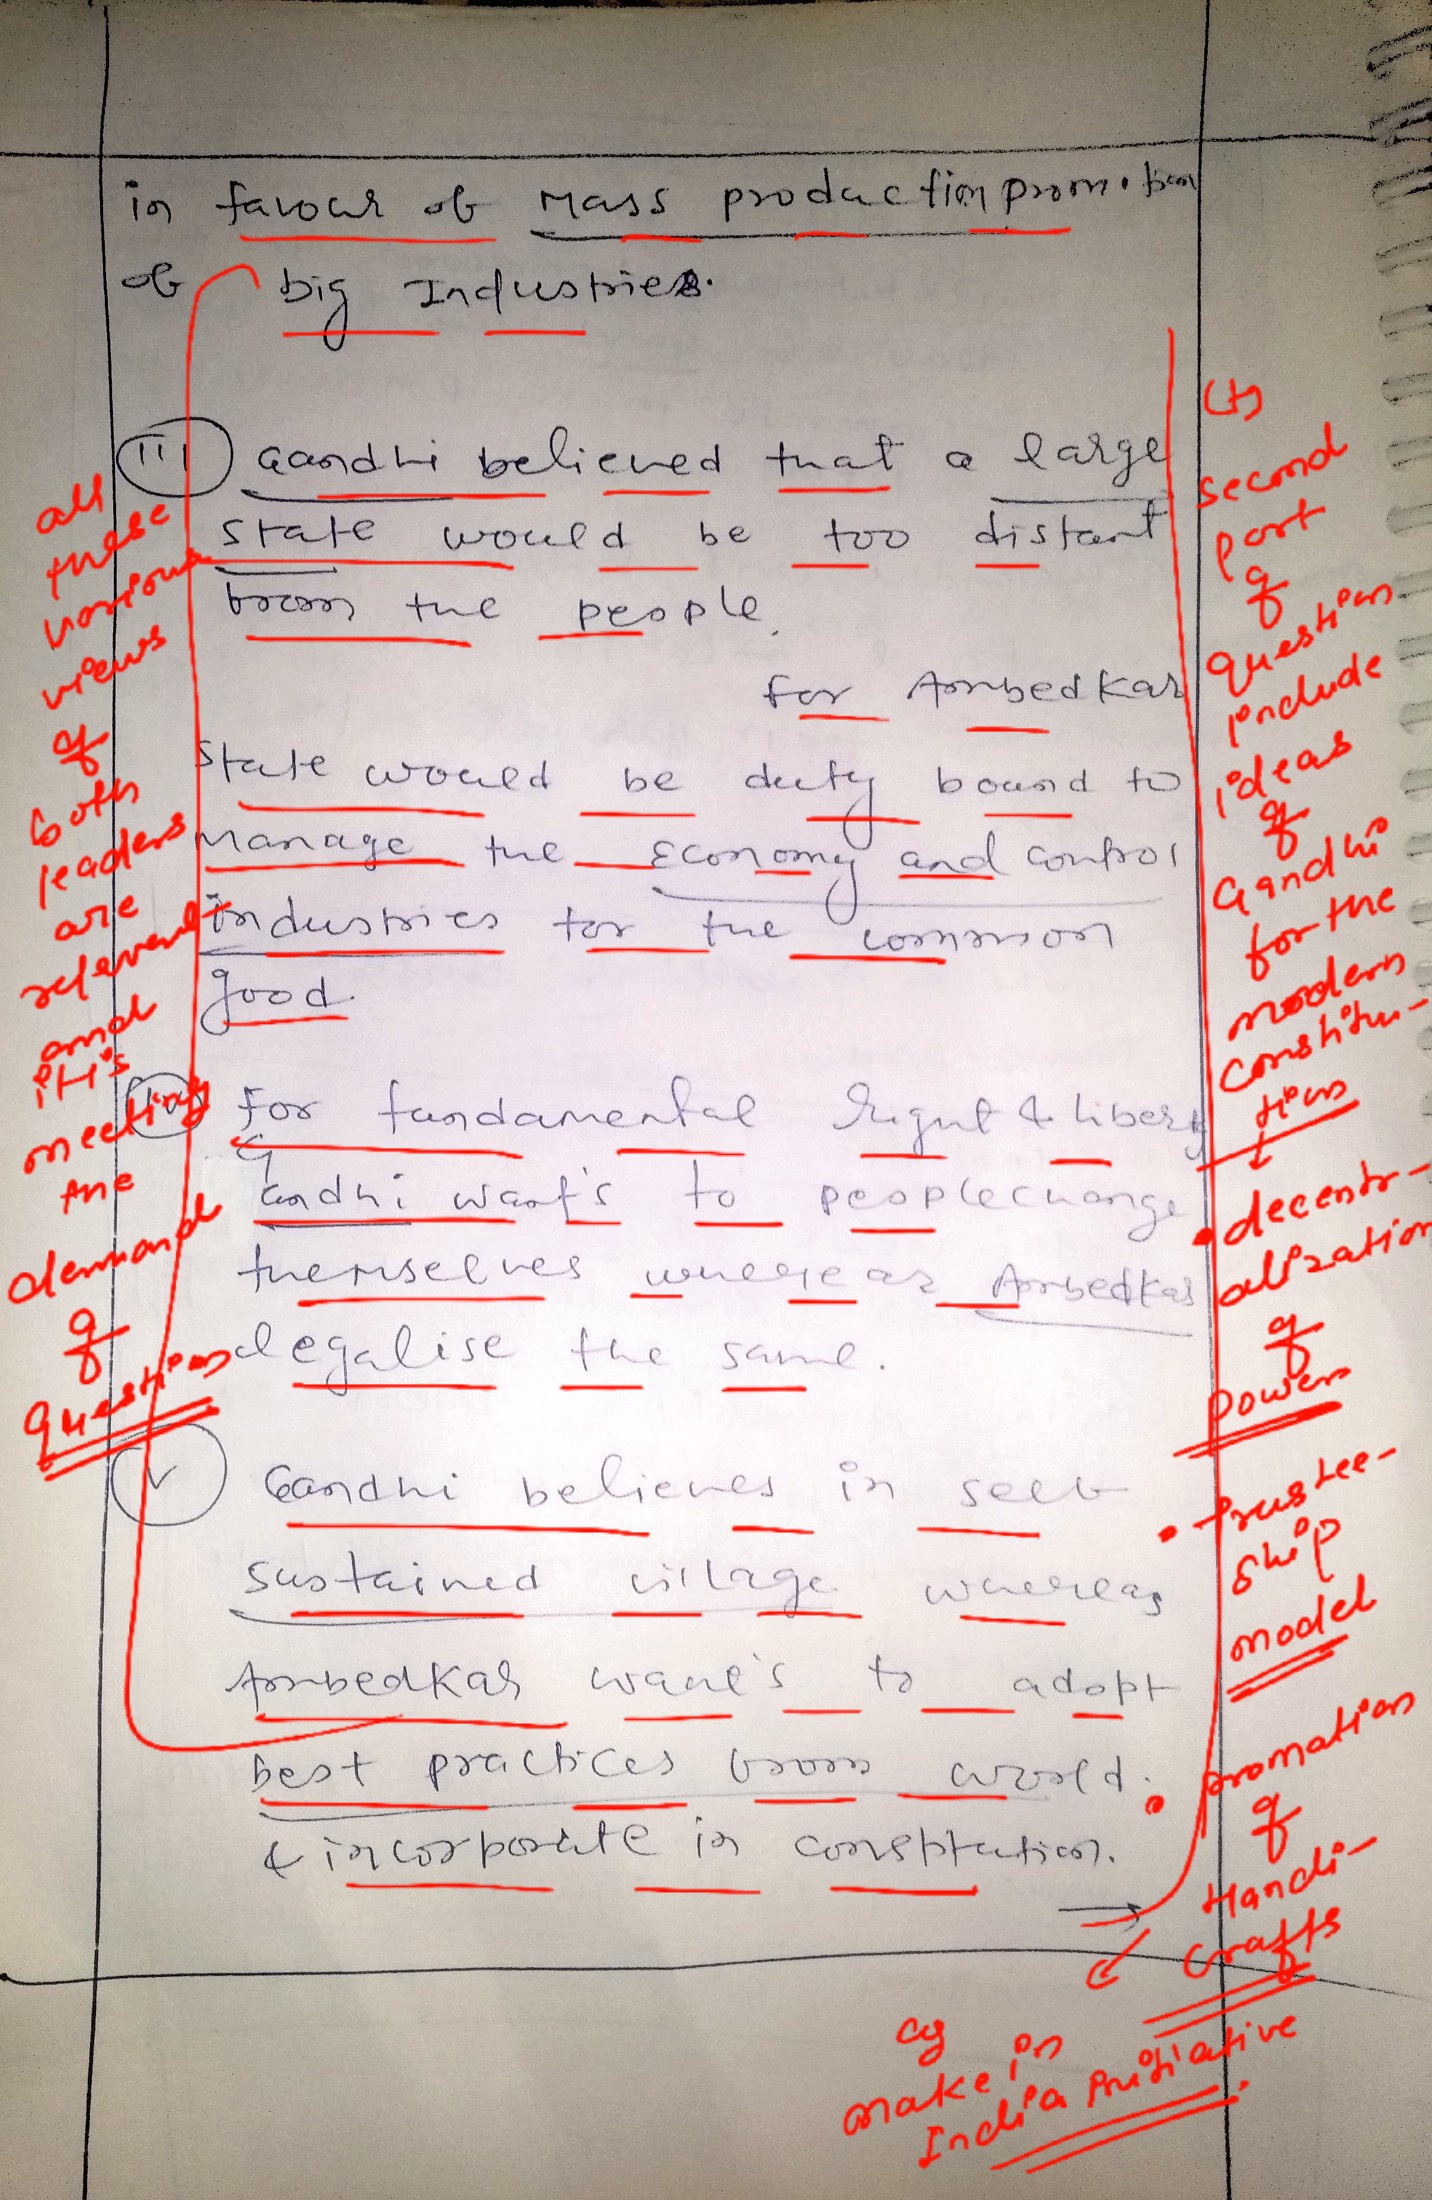 in favour of Mass production promotion
of big Industries.
III Gandhi believed that a large
state would be too distant
from the people.
for Ambedkar
State would be duty bound to
Manage the Economy and control
industries for the common
good.
For fundamental Right & liberty
Gandhi want's to people change
themselves whereas Ambedkar
legalise the same.
V Gandhi believes in self
sustained village whereas
Ambedkar want's to adopt
best practices from world.
& incorporate in constitution.
all
these
various
views
of
both
leaders
are
relevant
and
it's
meeting
the
demand
of
question
second
part
of
question
include
ideas
of
Gandhi
for the
modern
constitu-
tion
• decentr-
alization
of
power
• trustee-
ship
model
• promotion
of
Handi-
crafts
eg
make in
India initiative.